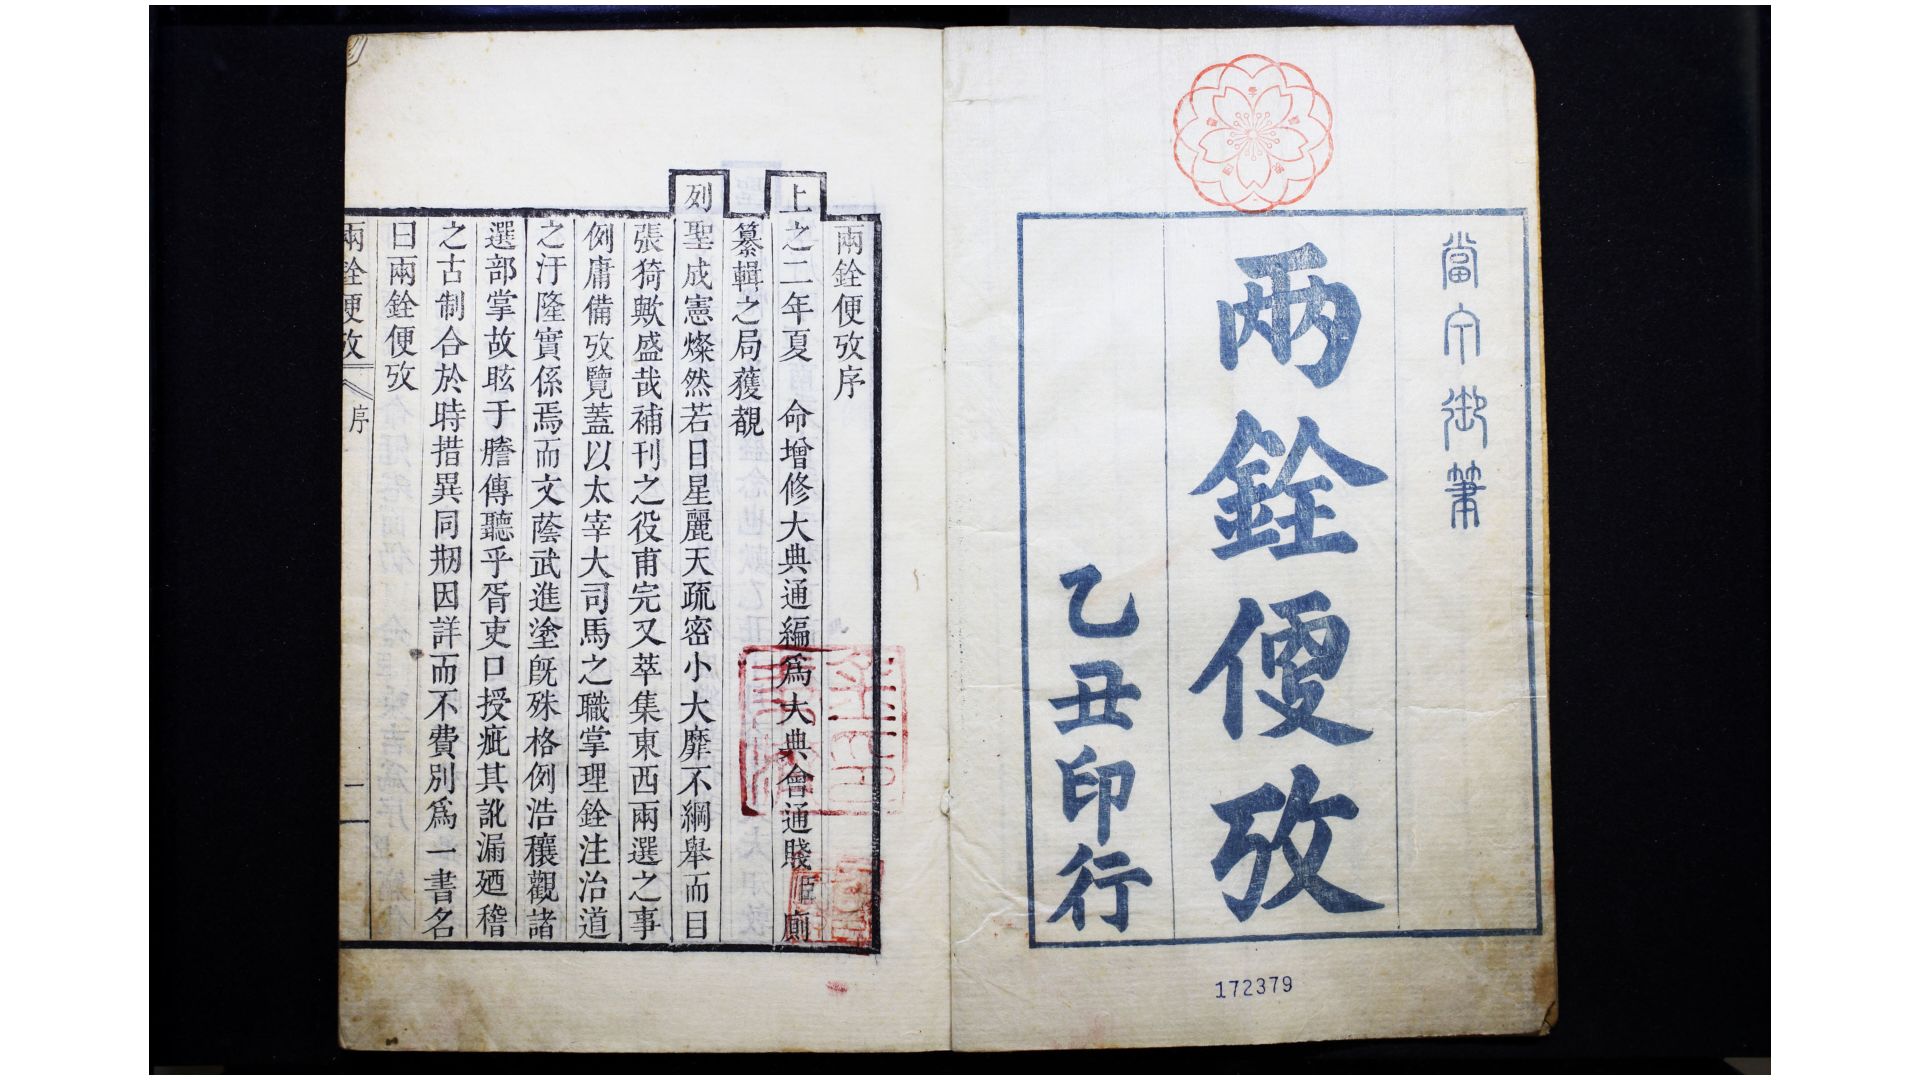 當宁御筆
兩銓便攷
乙丑印行
172379
兩銓便攷序
上之二年夏 命增修大典通編爲大典會通賤臣廁
纂輯之局獲覩
列聖成憲燦然若日星麗天疏密小大靡不綱舉而目
張猗歟盛哉補刊之役甫完又萃集東西兩選之事
例庸備攷覽蓋以太宰大司馬之職掌理銓注治道
之汙隆實係焉而文蔭武進塗旣殊格例浩穰觀諸
選部掌故眩于謄傳聽乎胥吏口授疵其訛漏廼稽
之古制合於時措異同刱因詳而不費別爲一書名
曰兩銓便攷
兩銓便攷
序